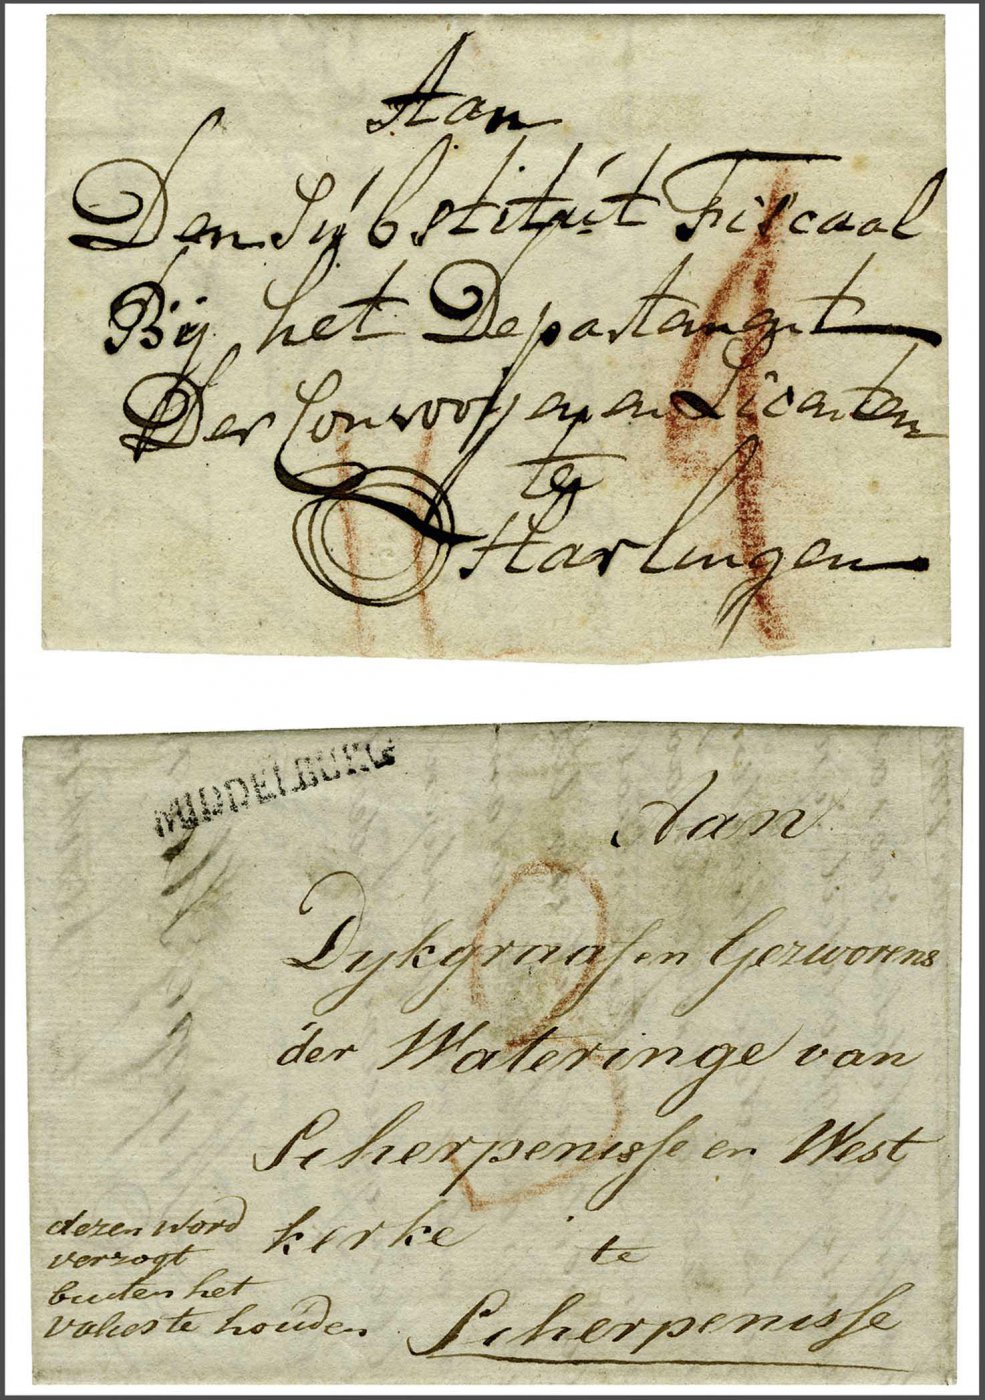 Aan
Den Substituut Fiscaal
Bij het Departament
Der Convooijen en Licenten
te
Harlingen
MIDDELBURG
Aan
Dykgraaf en Gezworens
der Wateringe van
Scherpenisse en West
kerke te
Scherpenisse
dezen word
verzogt
buiten het
valies te houden